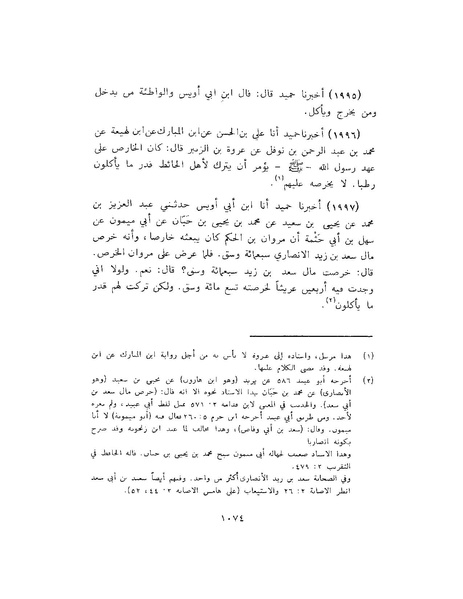 (١٩٩٥) أخبرنا حميد قال: قال ابن ابي أويس والواطئة من يدخل
ومن يخرج ويأكل.
(١٩٩٦) أخبرنا حميد أنا علي بن الحسن عن ابن المبارك عن ابن لهيعة عن
محمد بن عبد الرحمن بن نوفل عن عروة بن الزبير قال: كان الخارص على
عهد رسول الله - ﷺ - يؤمر أن يترك لأهل الحائط قدر ما يأكلون
رطبا. لا يخرصه عليهم(١).
(١٩٩٧) أخبرنا حميد أنا ابن أبي أويس حدثني عبد العزيز بن
محمد عن يحيى بن سعيد عن محمد بن يحيى بن حبّان عن أبي ميمون عن
سهل بن أبي حَثْمة أن مروان بن الحكم كان يبعثه خارصا، وأنه خرص
مال سعد بن زيد الانصاري سبعمائة وسق. فلما عرض على مروان الخرص.
قال: خرصت مال سعد بن زيد سبعمائة وسق؟ قال: نعم. ولولا اني
وجدت فيه أربعين عريشاً لخرصته تسع مائة وسق. ولكن تركت لهم قدر
ما يأكلون(٢).
(١) هذا مرسل، واسناده إلى عروة لا بأس به من أجل رواية ابن المبارك عن ابن
لهيعة. وقد مضى الكلام عليها.
(٢) أخرجه أبو عبيد ٥٨٦ عن يزيد (وهو ابن هارون) عن يحيى بن سعيد (وهو
الأنصاري) عن محمد بن حبّان بهذا الاسناد نحوه الا انه قال: (خرص مال سعد بن
أبي سعد). والحديث في المغني لابن قدامة ٢: ٥٧١ بمثل لفظ أبي عبيد، ولم يعزه
لأحد. ومن طريق أبي عبيد أخرجه ابن حزم ٥: ٢٦٠ فقال فيه (أبو ميمونة) لا أبا
ميمون. وقال: (سعد بن أبي وقاص)، وهذا مخالف لما عند ابن زنجويه وقد صرح
بكونه انصاريا
وهذا الاسناد ضعيف لجهالة أبي ميمون شيخ محمد بن يحيى بن حبان. قاله الحافظ في
التقريب ٢: ٤٧٩.
وفي الصحابة سعد بن زيد الأنصاري أكثر من واحد. وفيهم أيضاً سعد بن أبي سعد
انظر الاصابة ٢: ٢٦ والاستيعاب (على هامش الاصابة ٢: ٤٤، ٥٢).
١٠٧٤